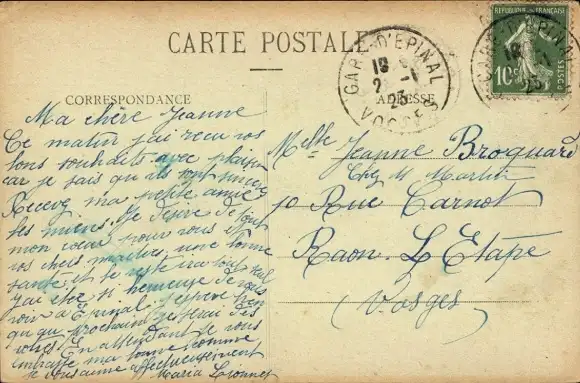 CARTE POSTALE
CORRESPONDANCE
ADRESSE
RÉPUBLIQUE FRANÇAISE
10c
POSTES
GARE D'EPINAL
18
2 -1
23
VOSGES
GARE D'EPINAL
18
-1
23
Ma chère Jeanne
Ce matin j'ai reçu vos
bons souhaits avec plaisir
car je sais qu'ils sont sincères
Recevez ma petite amie
les miens. Je désire de tout
mon cœur pour vous et
vos chers une bonne
santé et le reste ira tout seul
J'ai été si heureuse de vous
voir à Epinal. J'espère bien
qu'au prochain je serai des
vôtres. En attendant je vous
embrasse ma bonne comme
je vous aime affectueusement
Maria
Melle Jeanne Broquard
Chez M.
10 Rue Carnot
Raon. L'Etape
Vosges